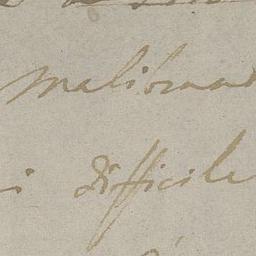 Malibran
i difficile